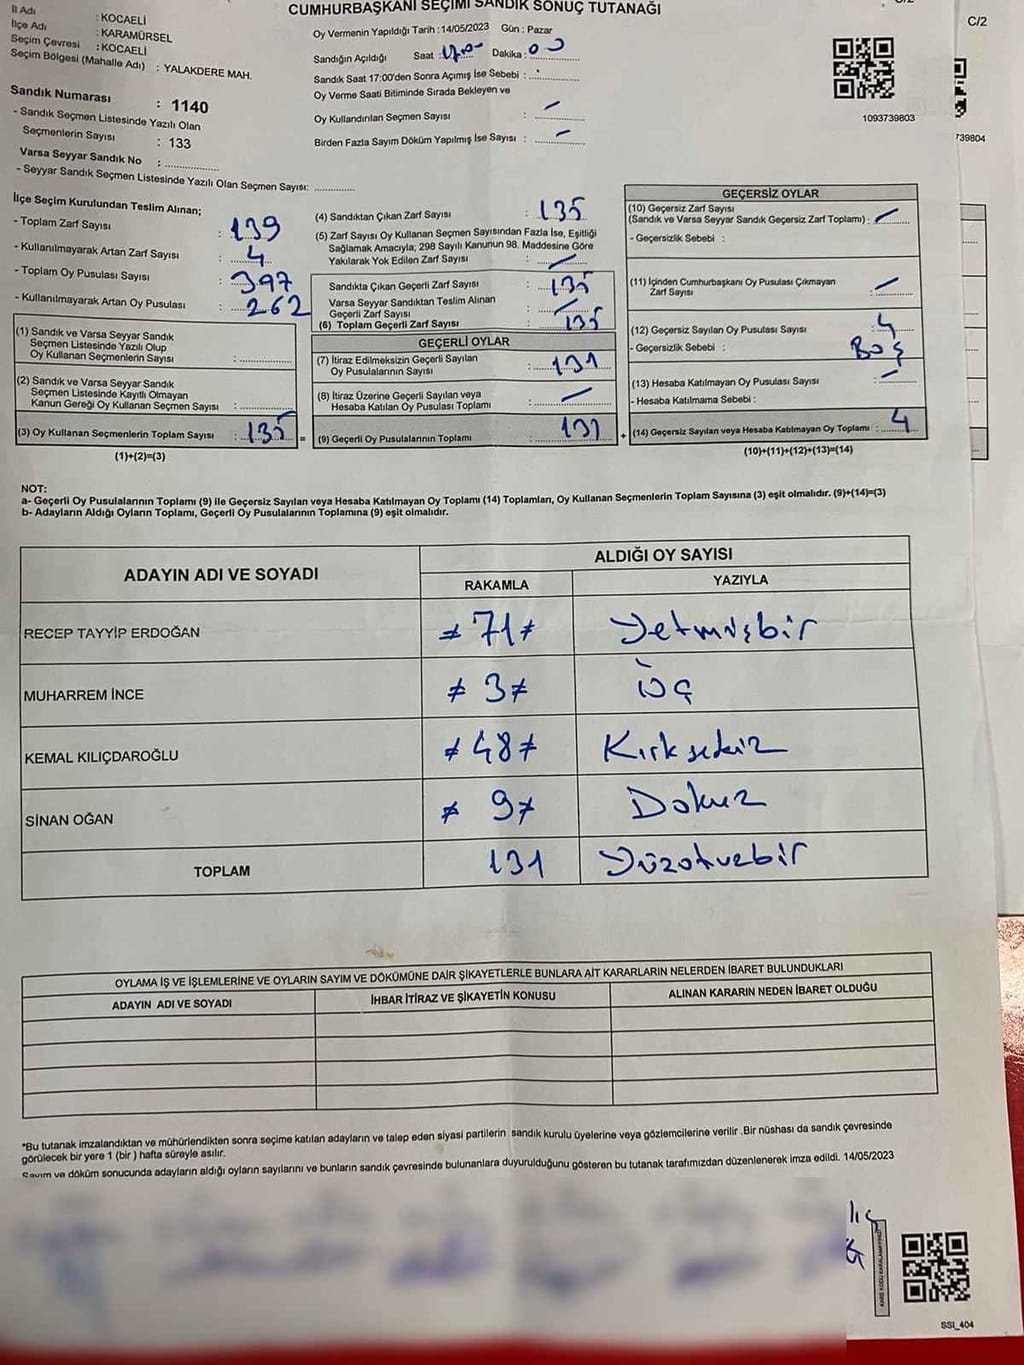 CUMHURBAŞKANI SEÇİMİ SANDIK SONUÇ TUTANAĞI
C/2
İl Adı : KOCAELİ
İlçe Adı : KARAMÜRSEL
Seçim Çevresi : KOCAELİ
Seçim Bölgesi (Mahalle Adı) : YALAKDERE MAH.
Sandık Numarası : 1140
- Sandık Seçmen Listesinde Yazılı Olan
Seçmenlerin Sayısı : 133
Varsa Seyyar Sandık No :
- Seyyar Sandık Seçmen Listesinde Yazılı Olan Seçmen Sayısı:
Oy Vermenin Yapıldığı Tarih :14/05/2023 Gün : Pazar
Sandığın Açıldığı Saat : Dakika :
Sandık Saat 17:00'den Sonra Açılmış İse Sebebi :
Oy Verme Saati Bitiminde Sırada Bekleyen ve
Oy Kullandırılan Seçmen Sayısı : –
Birden Fazla Sayım Döküm Yapılmış İse Sayısı : –
1093739803
739804
İlçe Seçim Kurulundan Teslim Alınan;
- Toplam Zarf Sayısı : 139
- Kullanılmayarak Artan Zarf Sayısı : 4
- Toplam Oy Pusulası Sayısı : 397
- Kullanılmayarak Artan Oy Pusulası : 262
(1) Sandık ve Varsa Seyyar Sandık
Seçmen Listesinde Yazılı Olup
Oy Kullanan Seçmenlerin Sayısı :
(2) Sandık ve Varsa Seyyar Sandık
Seçmen Listesinde Kayıtlı Olmayan
Kanun Gereği Oy Kullanan Seçmen Sayısı :
(3) Oy Kullanan Seçmenlerin Toplam Sayısı : 135 =
(1)+(2)=(3)
(4) Sandıktan Çıkan Zarf Sayısı : 135
(5) Zarf Sayısı Oy Kullanan Seçmen Sayısından Fazla İse, Eşitliği
Sağlamak Amacıyla; 298 Sayılı Kanunun 98. Maddesine Göre
Yakılarak Yok Edilen Zarf Sayısı : –
Sandıkta Çıkan Geçerli Zarf Sayısı : 135
Varsa Seyyar Sandıktan Teslim Alınan
Geçerli Zarf Sayısı : –
(6) Toplam Geçerli Zarf Sayısı : 135
GEÇERLİ OYLAR
(7) İtiraz Edilmeksizin Geçerli Sayılan
Oy Pusulalarının Sayısı : 131
(8) İtiraz Üzerine Geçerli Sayılan veya
Hesaba Katılan Oy Pusulası Toplamı : –
(9) Geçerli Oy Pusulalarının Toplamı : 131 +
GEÇERSİZ OYLAR
(10) Geçersiz Zarf Sayısı
(Sandık ve Varsa Seyyar Sandık Geçersiz Zarf Toplamı) : –
- Geçersizlik Sebebi :
(11) İçinden Cumhurbaşkanı Oy Pusulası Çıkmayan
Zarf Sayısı : –
(12) Geçersiz Sayılan Oy Pusulası Sayısı : 4
- Geçersizlik Sebebi : Boş
(13) Hesaba Katılmayan Oy Pusulası Sayısı : –
- Hesaba Katılmama Sebebi :
(14) Geçersiz Sayılan veya Hesaba Katılmayan Oy Toplamı : 4
(10)+(11)+(12)+(13)=(14)
NOT:
a- Geçerli Oy Pusulalarının Toplamı (9) ile Geçersiz Sayılan veya Hesaba Katılmayan Oy Toplamı (14) Toplamları, Oy Kullanan Seçmenlerin Toplam Sayısına (3) eşit olmalıdır. (9)+(14)=(3)
b- Adayların Aldığı Oyların Toplamı, Geçerli Oy Pusulalarının Toplamına (9) eşit olmalıdır.
ADAYIN ADI VE SOYADI
ALDIĞI OY SAYISI
RAKAMLA YAZIYLA
RECEP TAYYİP ERDOĞAN ≠ 71 ≠ Yetmişbir
MUHARREM İNCE ≠ 3 ≠ Üç
KEMAL KILIÇDAROĞLU ≠ 48 ≠ Kırksekiz
SİNAN OĞAN ≠ 9 ≠ Dokuz
TOPLAM 131 Yüzotuzbir
OYLAMA İŞ VE İŞLEMLERİNE VE OYLARIN SAYIM VE DÖKÜMÜNE DAİR ŞİKAYETLERLE BUNLARA AİT KARARLARIN NELERDEN İBARET BULUNDUKLARI
ADAYIN ADI VE SOYADI İHBAR İTİRAZ VE ŞİKAYETİN KONUSU ALINAN KARARIN NEDEN İBARET OLDUĞU
*Bu tutanak imzalandıktan ve mühürlendikten sonra seçime katılan adayların ve talep eden siyasi partilerin sandık kurulu üyelerine veya gözlemcilerine verilir .Bir nüshası da sandık çevresinde
görülecek bir yere 1 (bir ) hafta süreyle asılır.
Sayım ve döküm sonucunda adayların aldığı oyların sayılarını ve bunların sandık çevresinde bulunanlara duyurulduğunu gösteren bu tutanak tarafımızdan düzenlenerek imza edildi. 14/05/2023
KARE KODU KARALAMAYINIZ
SSI_404